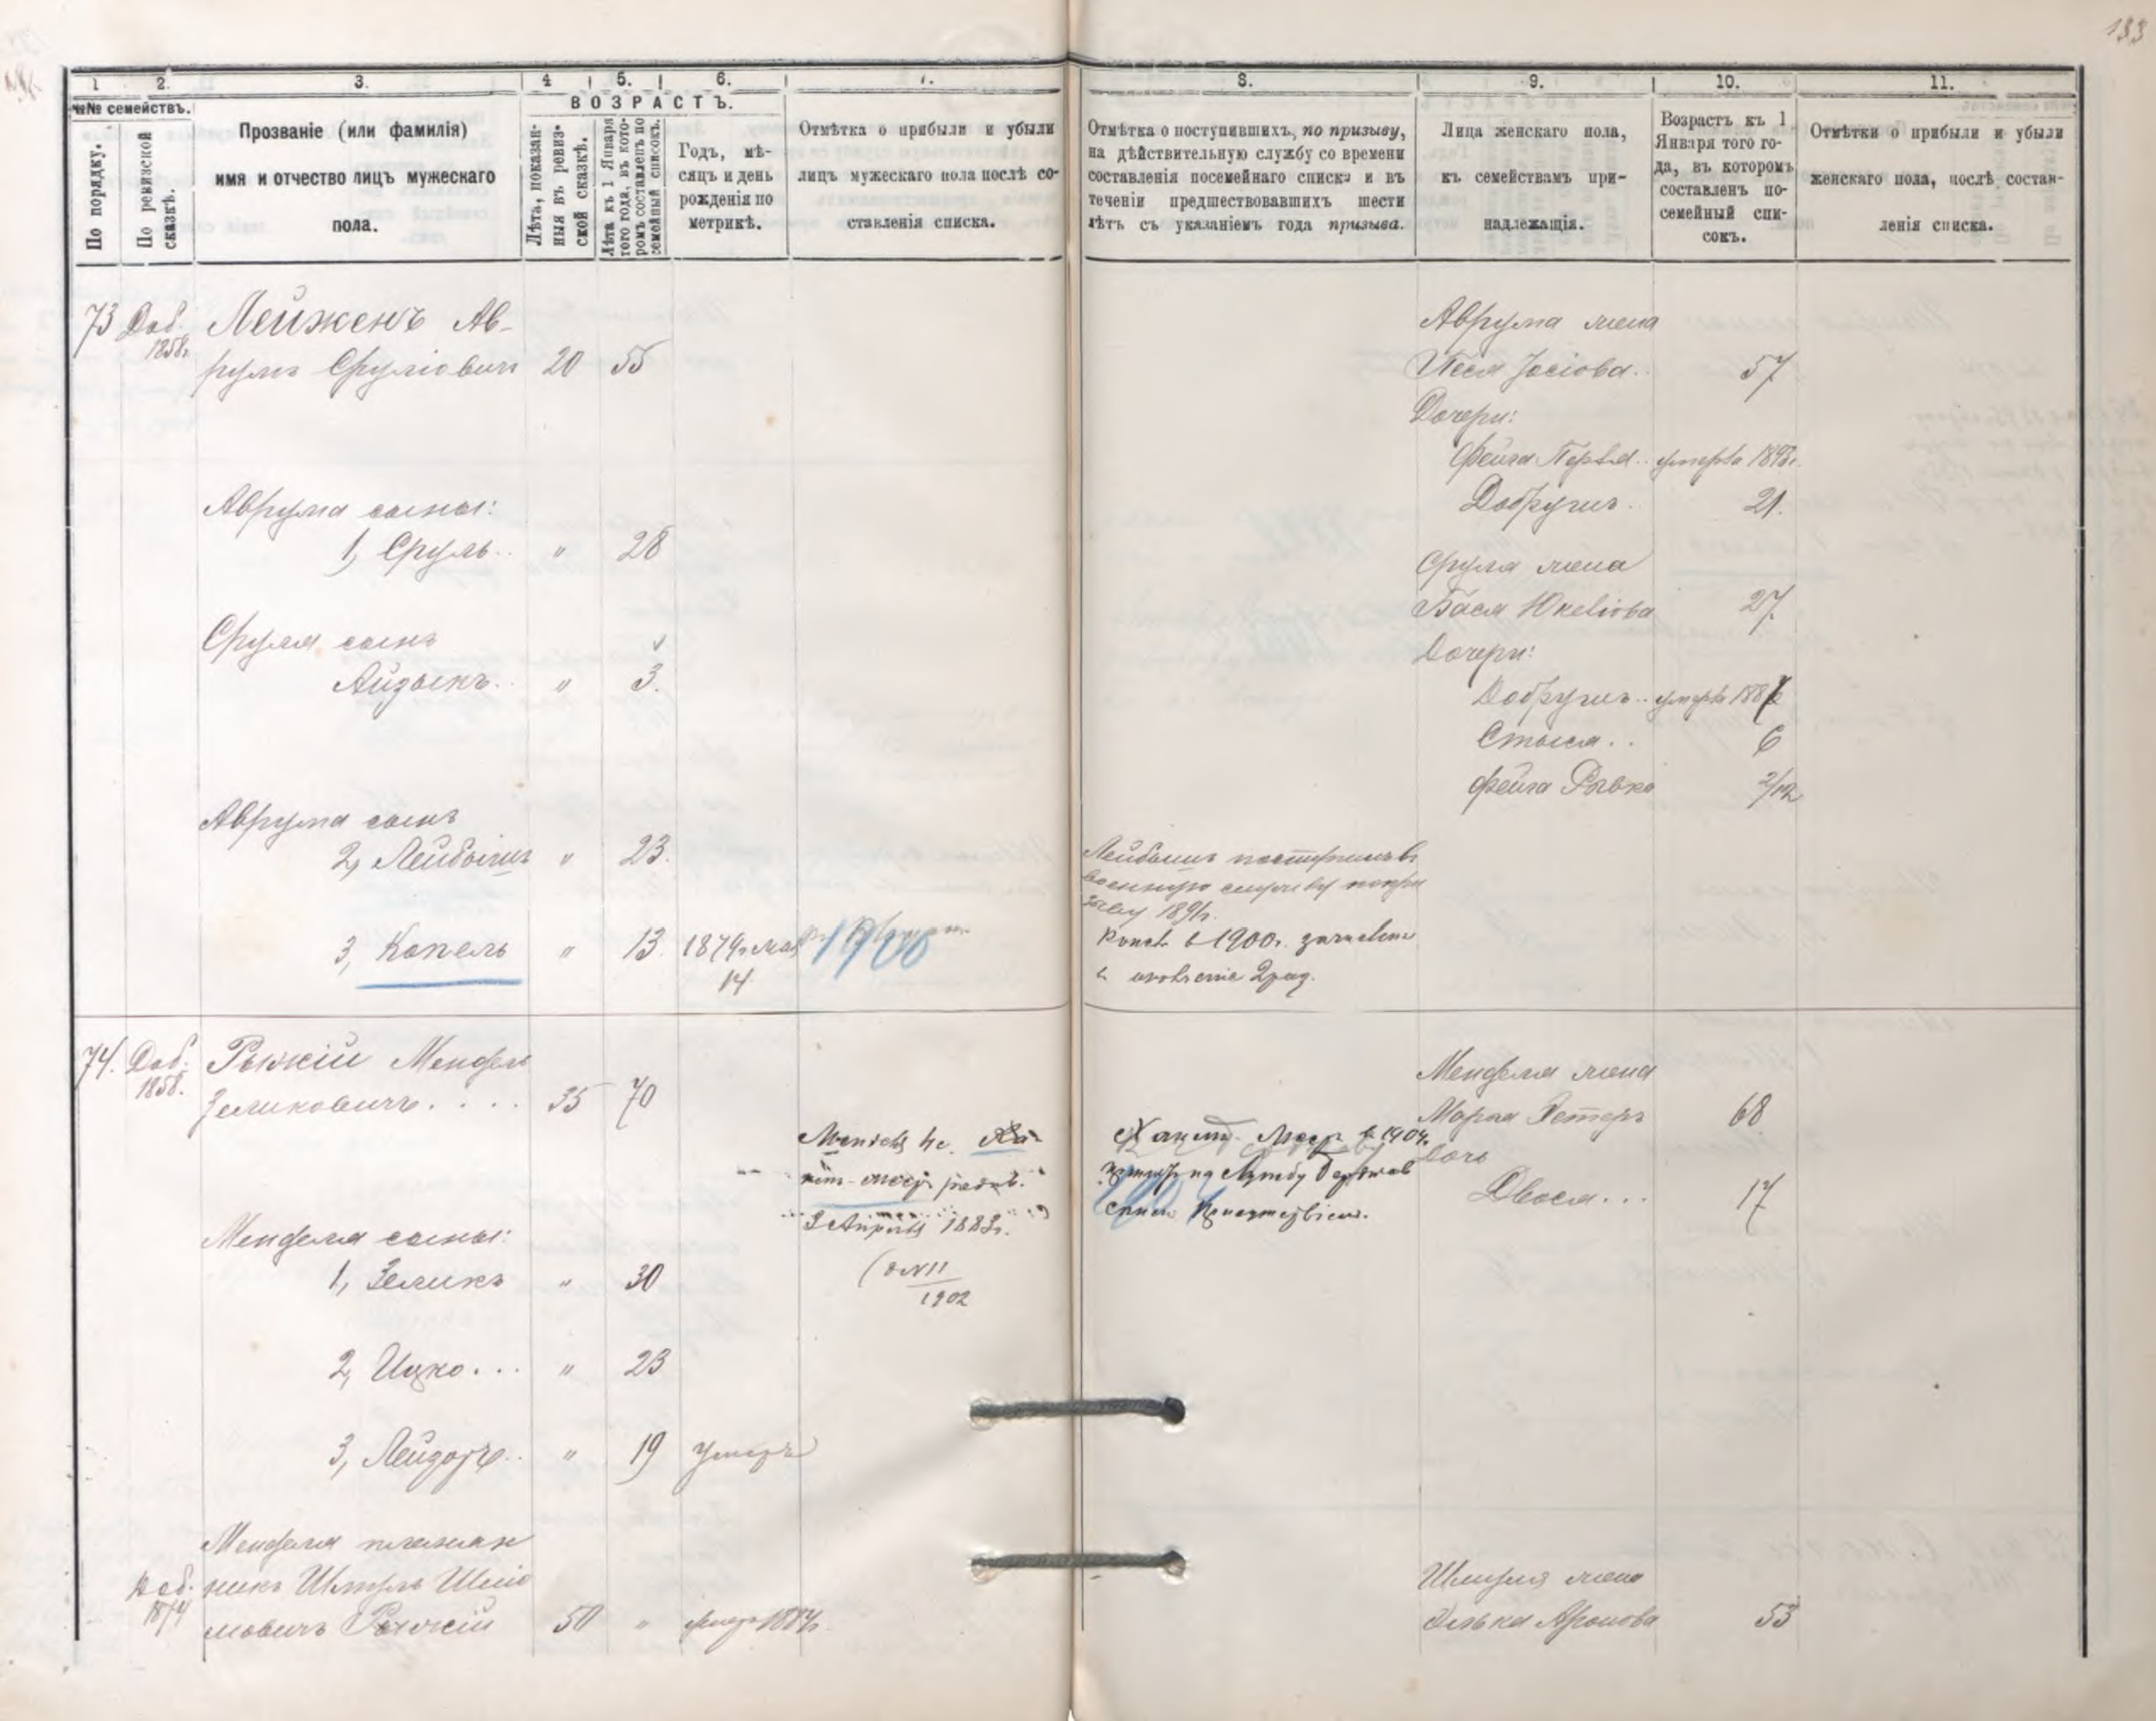 133
1 2. 3. 4 5. 6. 7. 8. 9. 10. 11.
№№ семействъ.
По порядку.
По ревизской сказкѣ.
Прозваніе (или фамилія)
имя и отчество лицъ мужескаго
пола.
ВОЗРАСТЪ.
Лѣта, показан-
ныя въ ревиз-
ской сказкѣ.
Лѣта къ 1 Января
того года, въ кото-
ромъ составленъ по
семейный списокъ.
Годъ, мѣ-
сяцъ и день
рожденія по
метрикѣ.
Отмѣтка о прибыли и убыли
лицъ мужескаго пола послѣ со-
ставленія списка.
Отмѣтка о поступившихъ, по призыву,
на дѣйствительную службу со времени
составленія посемейнаго списка и въ
теченіи предшествовавшихъ шести
лѣтъ съ указаніемъ года призыва.
Лица женскаго пола,
къ семействамъ при-
надлежащія.
Возрастъ къ 1
Января того го-
да, въ которомъ
составленъ по-
семейный спи-
сокъ.
Отмѣтки о прибыли и убыли
женскаго пола, послѣ состав-
ленія списка.
73 Доб. Лейженъ Ав-
1858г.
румъ Сруліовичъ 20 55
Аврума жена
Песя Іосіова.. 57
Дочери:
Фейга Перля.. умерла 1893г.
Добругиъ. 21.
Аврума сыны:
1, Сруль.. " 28
Сруля жена
Бася Юкеліова 27
Сруля сынъ
Айзыкъ.. " 3.
Дочери:
Добругиъ.. умерла 188
Стыся.. 6
Фейга Рывка 2/12
Аврума сынъ
2, Лейбышъ " 23.
Лейбышъ поступилъ въ
военную службу по при
зыву 1891г.
3, Копель " 13. 1879г. мая
14
1900
Копель в 1900г. зачисленъ
в ополченіе 2 раз.
74. Доб. Рыжій Мендель
1858.
Зеликовичъ.... 35 70
Менделя жена
Марья Эстеръ 68
дочь
Двося... 17
3 Апрѣля 1883г.
11
1902
Менделя сыны:
1, Зеликъ " 30
2, Ицко... " 23
3, Лейзоръ.. " 19 умеръ
Менделя племян
Доб. никъ Шмуль Шлiо
1874
мовичъ Рыжій 50 " умеръ 1884г.
Шмуля жена
Элька Аронова 53